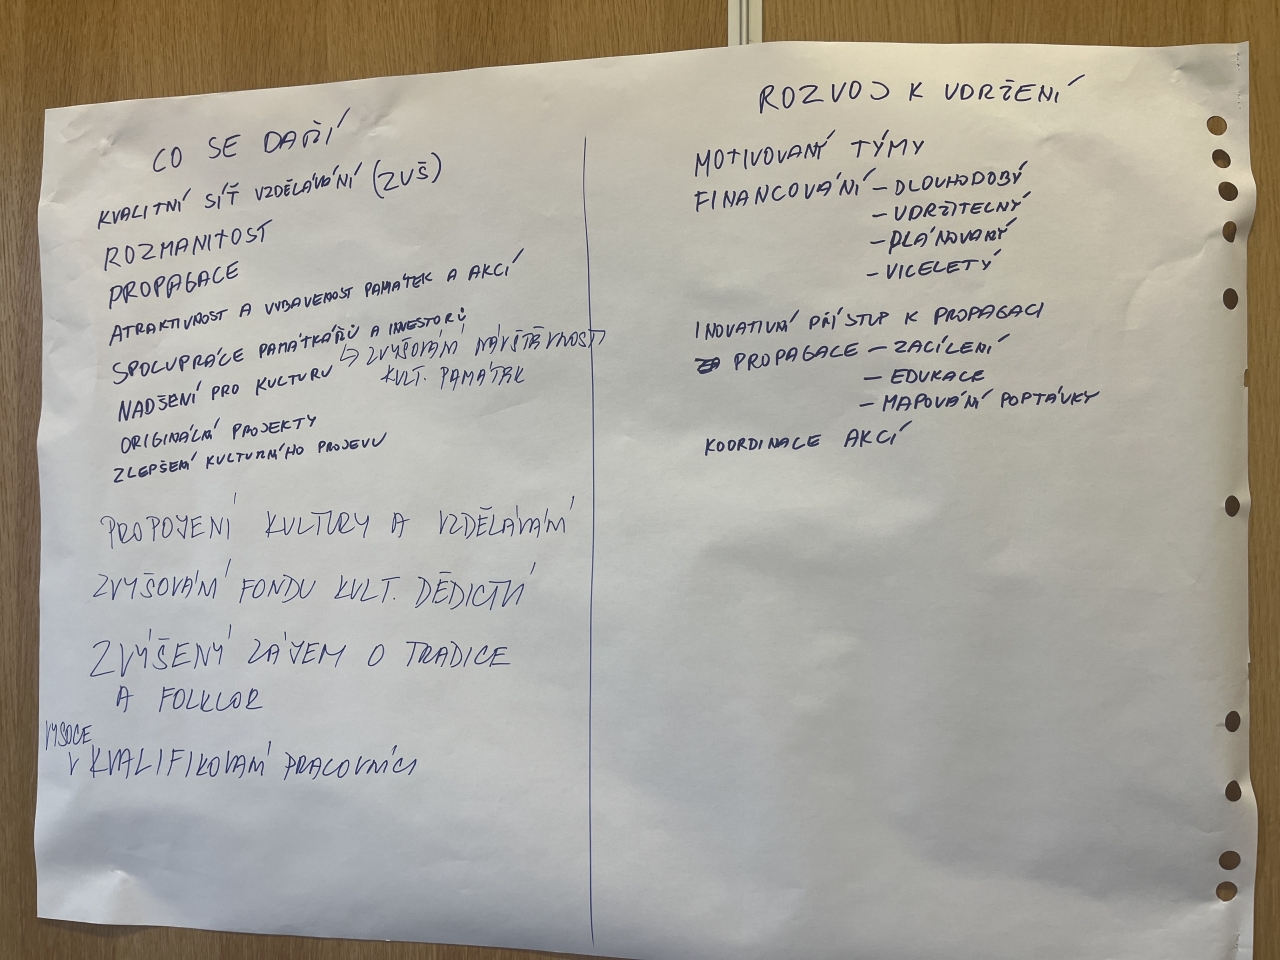 CO SE DAŘÍ
KVALITNÍ SÍŤ VZDĚLÁVÁNÍ (ZUŠ)
ROZMANITOST
PROPAGACE
ATRAKTIVNOST A VYBAVENOST PAMÁTEK A AKCÍ
SPOLUPRÁCE PAMÁTKÁŘŮ A INVESTORŮ
NADŠENÍ PRO KULTURU ↳ ZVYŠOVÁNÍ NÁVŠTĚVNOSTI
KULT. PAMÁTEK
ORIGINÁLNÍ PROJEKTY
ZLEPŠENÍ KULTURNÍHO PROJEVU
PROPOJENÍ KULTURY A VZDĚLÁVÁNÍ
ZVYŠOVÁNÍ FONDU KULT. DĚDICTVÍ
ZVÝŠENÝ ZÁJEM O TRADICE
A FOLKLOR
VYSOCE
v KVALIFIKOVANÍ PRACOVNÍCI
ROZVOJ K UDRŽENÍ
MOTIVOVANÝ TÝMY
FINANCOVÁNÍ – DLOUHODOBÝ
– UDRŽITELNÝ
– PLÁNOVANÝ
– VICELETÝ
INOVATIVNÍ PŘÍSTUP K PROPAGACI
PROPAGACE – ZACÍLENÍ
– EDUKACE
– MAPOVÁNÍ POPTÁVKY
KOORDINACE AKCÍ